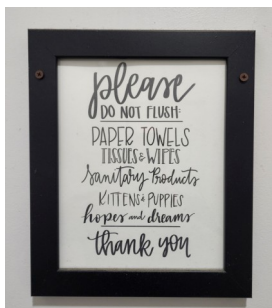 please
DO NOT FLUSH:
PAPER TOWELS
TISSUES & WIPES
Sanitary Products
KITTENS & PUPPIES
hopes and dreams
thank you